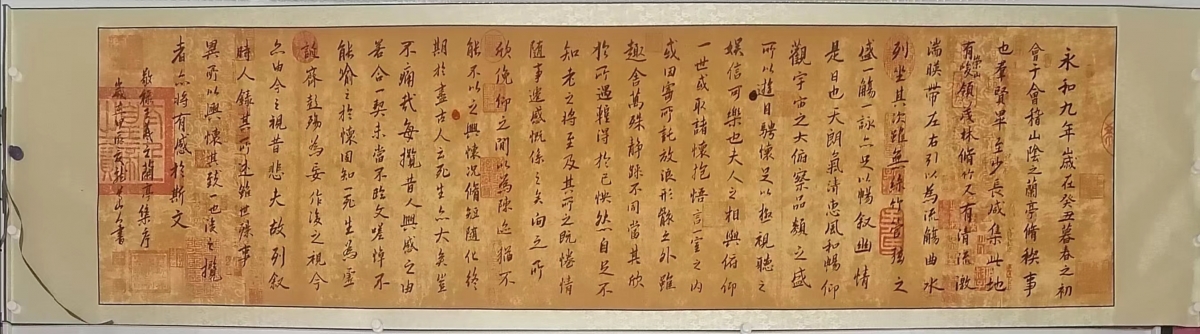 永和九年歲在癸丑暮春之初
會于會稽山陰之蘭亭脩稧事
也羣賢畢至少長咸集此地
有崇山峻領茂林脩竹又有清流激
湍暎帶左右引以為流觴曲水
列坐其次雖無絲竹管弦之
盛一觴一詠亦足以暢敘幽情
是日也天朗氣清惠風和暢仰
觀宇宙之大俯察品類之盛
所以遊目騁懷足以極視聽之
娛信可樂也夫人之相與俯仰
一世或取諸懷抱悟言一室之內
或因寄所託放浪形骸之外雖
趣舍萬殊靜躁不同當其欣
於所遇蹔得於己怏然自足不
知老之將至及其所之既惓情
隨事遷感慨係之矣向之所
欣俛仰之間以為陳迹猶不
能不以之興懷況脩短隨化終
期於盡古人云死生亦大矣豈
不痛哉每攬昔人興感之由
若合一契未嘗不臨文嗟悼不
能喻之於懷固知一死生為虛
誕齊彭殤為妄作後之視今
亦由今之視昔悲夫故列敘
時人錄其所述雖世殊事
異所以興懷其致一也後之攬
者亦將有感於斯文
敬錄王羲之蘭亭集序